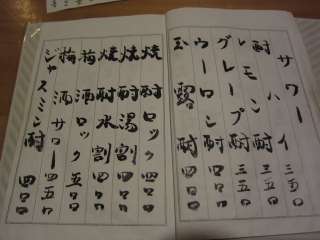 サワー 三五〇
酎ハイ 三五〇
レモン酎 三五〇
グレープ酎
ウーロン酎
玉露酎 四〇〇
焼酎ロック 四〇〇
焼酎湯割 四〇〇
焼酎水割 四〇〇
梅酒ロック 五〇〇
梅酒サワー 四五〇
ジャスミン酎 四〇〇